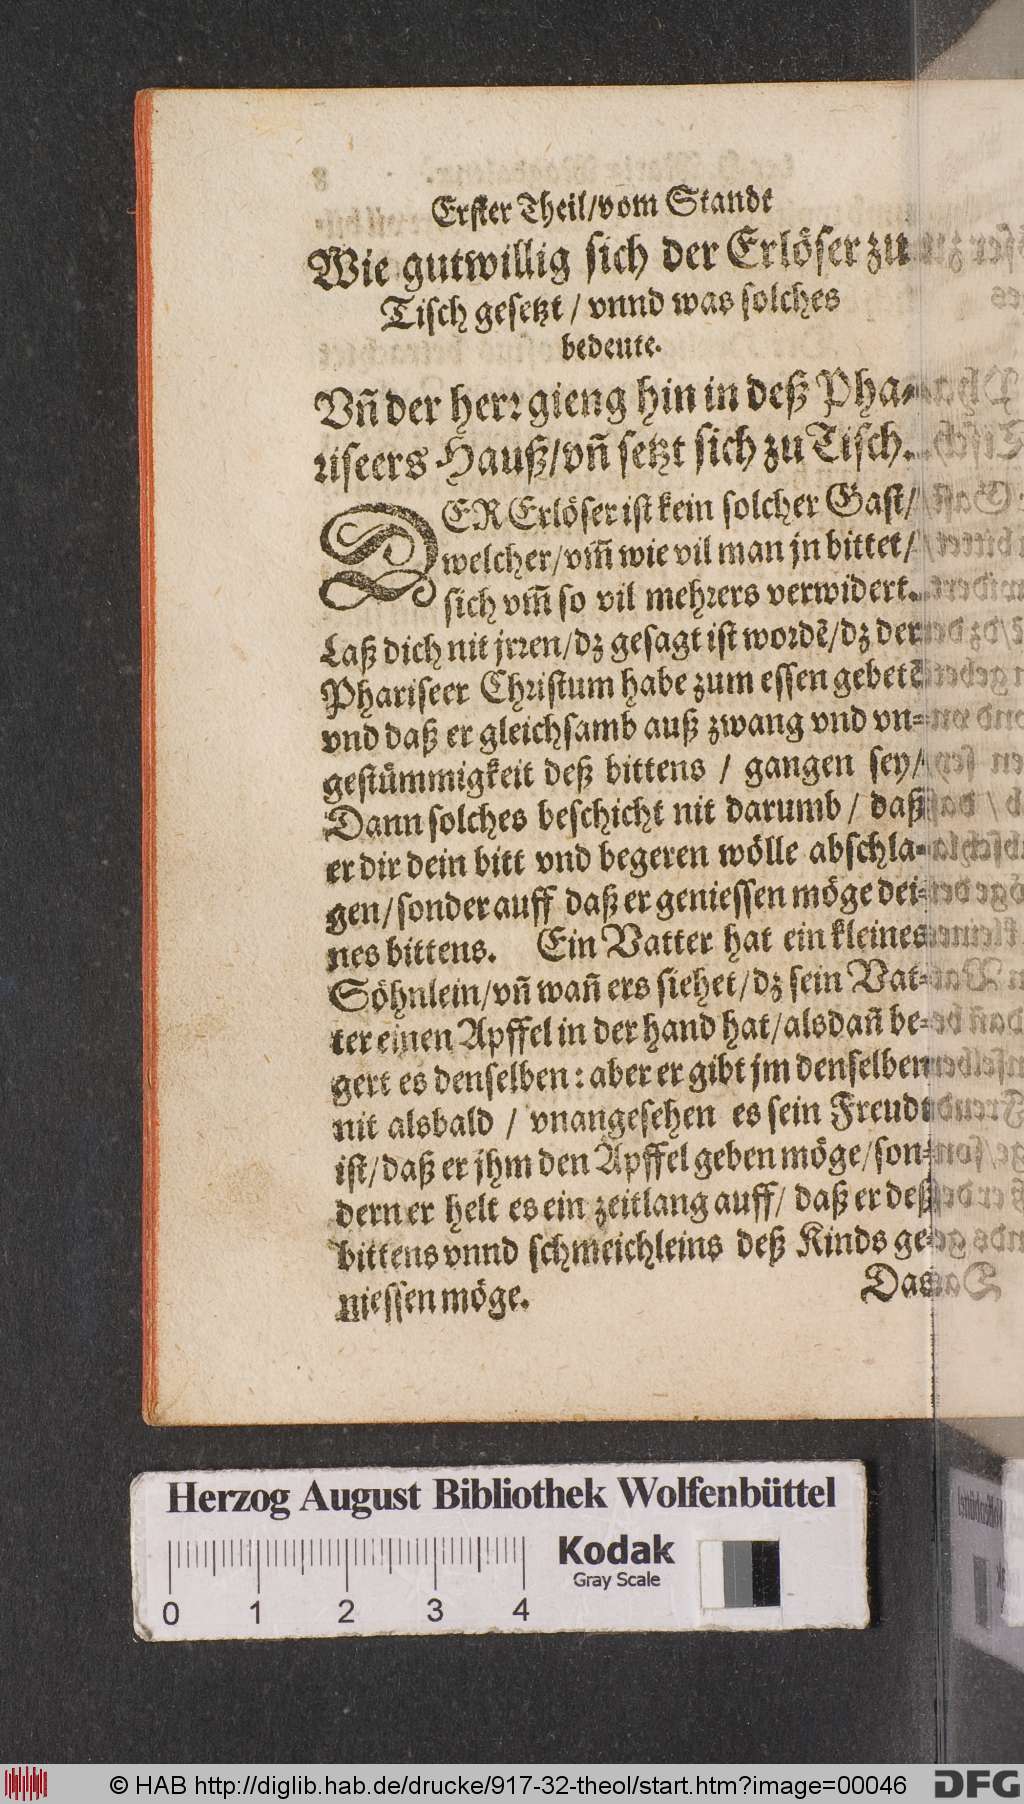 Erster Theil/vom Standt
Wie gutwillig sich der Erlöser zu
Tisch gesetzt / vnnd was solches
bedeute.
Vñ der herr gieng hin in deß Pha-
riseers Hauß/vñ setzt sich zu Tisch.
DER Erlöser ist kein solcher Gast/
welcher/vm̃ wie vil man jn bittet/
sich vm̃ so vil mehrers verwidert.
Laß dich nit jrren/dz gesagt ist wordẽ/dz der
Phariseer Christum habe zum essen gebetẽ
vnd daß er gleichsamb auß zwang vnd vn-
gestümmigkeit deß bittens / gangen sey/
Dann solches beschicht nit darumb / daß
er dir dein bitt vnd begeren wölle abschla-
gen/sonder auff daß er geniessen möge dei-
nes bittens. Ein Vatter hat ein kleines
Söhnlein/vñ wañ ers siehet/dz sein Vat-
ter einen Apffel in der hand hat/alsdañ be-
gert es denselben: aber er gibt jm denselben
nit alsbald / vnangesehen es sein Freudt
ist/daß er jhm den Apffel geben möge/son-
dern er helt es ein zeitlang auff/ daß er deß
bittens vnnd schmeichleins deß Kinds ge-
niessen möge.
Das
Herzog August Bibliothek Wolfenbüttel
Kodak
Gray Scale
0 1 2 3 4
© HAB http://diglib.hab.de/drucke/917-32-theol/start.htm?image=00046
DFG